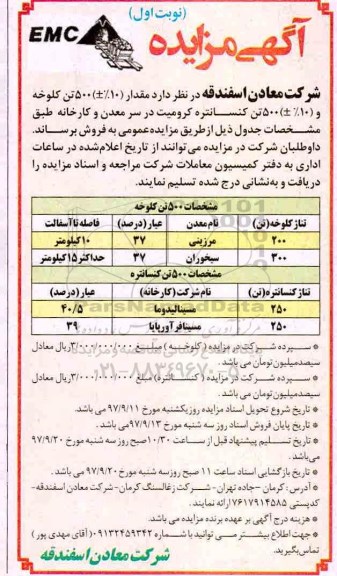 (نوبت اول)
آگهی مزایده
EMC
شرکت معادن اسفندقه در نظر دارد مقدار (۱۰٪±)۵۰۰تن کلوخه
و (۱۰٪±)۵۰۰تن کنسانتره کرومیت در سر معدن و کارخانه طبق
مشخصات جدول ذیل ازطریق مزایده عمومی به فروش برساند.
داوطلبان شرکت در مزایده می توانند از تاریخ اعلام شده در ساعات
اداری به دفتر کمیسیون معاملات شرکت مراجعه و اسناد مزایده را
دریافت و به نشانی درج شده تسلیم نمایند.
مشخصات ۵۰۰تن کلوخه
تناژ کلوخه(تن) نام معدن عیار(درصد) فاصله تا آسفالت
۲۰۰ مرزینی ۳۷ ۱۰کیلومتر
۳۰۰ سیخوران ۳۷ حداکثر۱۵کیلومتر
مشخصات ۵۰۰تن کنسانتره
تناژ کنسانتره(تن) نام شرکت(کارخانه) عیار(درصد)
۲۵۰ مسینالیدوما ۴۰/۵
۲۵۰ مسینافرآورپایا ۳۹
* سپرده شرکت در مزایده (کلوخه) مبلغ ۳/۰۰۰/۰۰۰/۰۰۰ریال معادل
سیصدمیلیون تومان می باشد.
* سپرده شرکت در مزایده (کنسانتره) مبلغ ۳/۰۰۰/۰۰۰/۰۰۰ریال معادل
سیصدمیلیون تومان می باشد.
* تاریخ شروع تحویل اسناد مزایده روزیکشنبه مورخ ۹۷/۹/۱۱ می باشد.
* تاریخ پایان فروش اسناد روز سه شنبه مورخ ۹۷/۹/۱۳می باشد.
* تاریخ تسلیم پیشنهاد قبل از ساعت ۱۰/۳۰صبح روز سه شنبه مورخ ۹۷/۹/۲۰
می باشد.
* تاریخ بازگشایی اسناد ساعت ۱۱ صبح روزسه شنبه مورخ۹۷/۹/۲۰ می باشد.
* آدرس: کرمان –جاده تهران- شرکت زغالسنگ کرمان- شرکت معادن اسفندقه-
کدپستی ۷۶۱۷۹۱۴۵۸۵ ارائه نمایند.
* هزینه درج آگهی بر عهده برنده مزایده می باشد.
* جهت اطلاع بیشتر می توانید با شماره ۰۹۱۳۲۴۵۹۳۴۲ (آقای مهدی پور)
تماس بگیرید.
شرکت معادن اسفندقه
ParsNamadData
۰۲۱-۸۸۳۴۹۶۷۰-۵